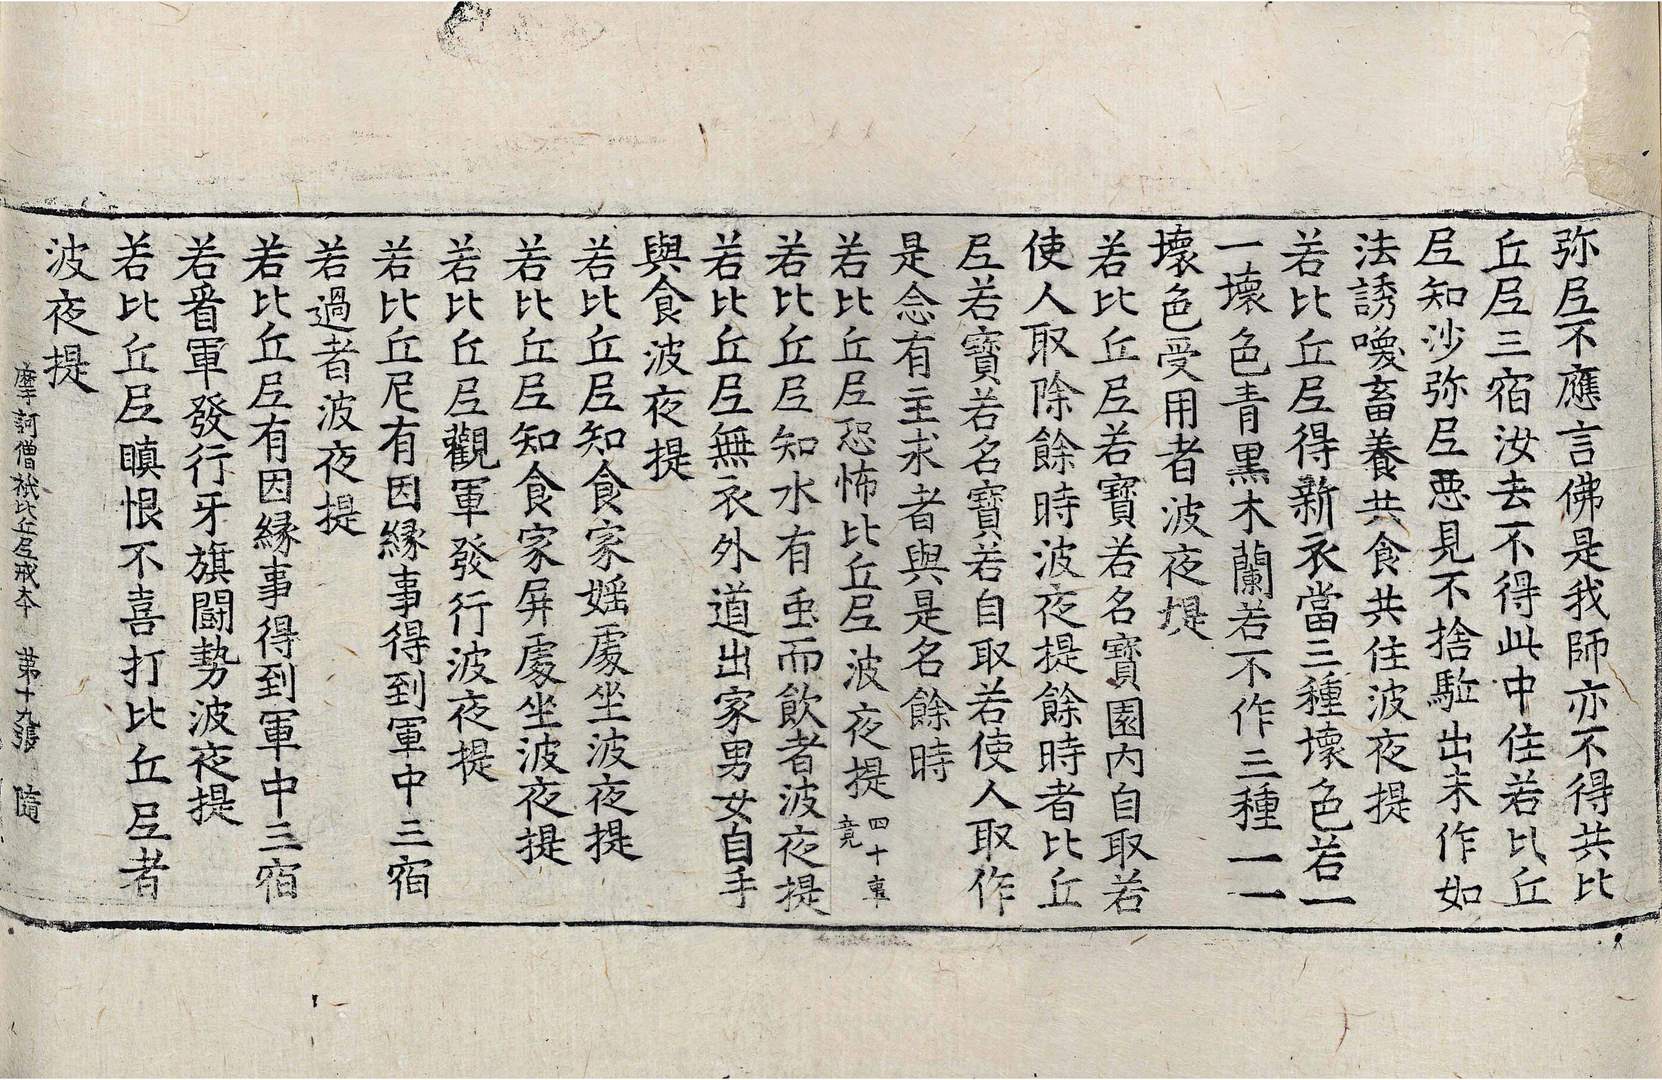 弥𡰱不應言佛是我師亦不得共比
丘𡰱三宿汝去不得此中住若比丘
𡰱知沙弥𡰱惡見不捨駈出未作如
法誘喚畜養共食共住波夜提
若比丘𡰱得新衣當三種壞色若一
一壞色青黑木蘭若不作三種一一
壞色受用者波夜提
若比丘𡰱若寶若名寶園内自取若
使人取除餘時波夜提餘時者比丘
𡰱若寶若名寶若自取若使人取作
是念有主求者與是名餘時
若比丘𡰱恐怖比丘𡰱波夜提四十事竟
若比丘𡰱知水有虫而飲者波夜提
若比丘𡰱無衣外道出家男女自手
與食波夜提
若比丘𡰱知食家婬處坐波夜提
若比丘𡰱知食家屏處坐波夜提
若比丘𡰱觀軍發行波夜提
若比丘尼有因縁事得到軍中三宿
若過者波夜提
若比丘𡰱有因縁事得到軍中三宿
若看軍發行牙旗鬪勢波夜提
若比丘𡰱瞋恨不喜打比丘𡰱者
波夜提
摩訶僧祇比丘𡰱戒本 第十九張 隨